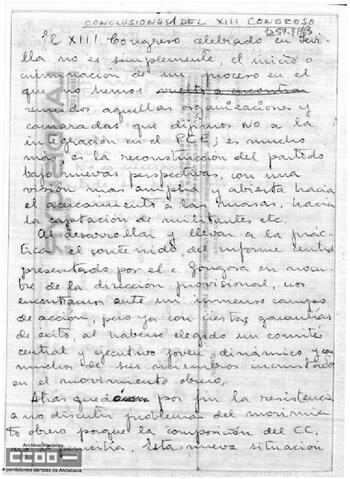 CONCLUSIONES DEL XIII CONGRESO
El XIII Congreso celebrado en Sevi-
lla no es simplemente, el inicio o
culminacion de un proceso en el
que no hemos vuelto a encontrar
reunidos aquellas organizaciones y
camaradas que dijimos NO a la
integración en el PCE; es mucho
mas, es la reconstrucción del partido
bajo nuevas perspectivas, con una
visión mas amplia y abierta hacia
el acercamiento a las masas, hacia
la captación de militantes etc.
Al desarrollar y llevar a la prác-
tica el contenido del informe central
presentado por el c. Gongora en nom-
bre de la dirección provisional, nos
encontramos ante un inmenso campo
de acción, pero ya con ciertas garantias
de éxito, al haberse elegido un comité
central y ejecutivo joven, dinámico y con
muchos de sus miembros incrustados
en el movimiento obrero.
Atras quedó por fin la resistencia
a no discutir problemas del movimien-
to obrero porque la composición del CC.
no permitia. Esta nueva situación
Archivo Histórico
CCOO
comisiones obreras de Andalucía